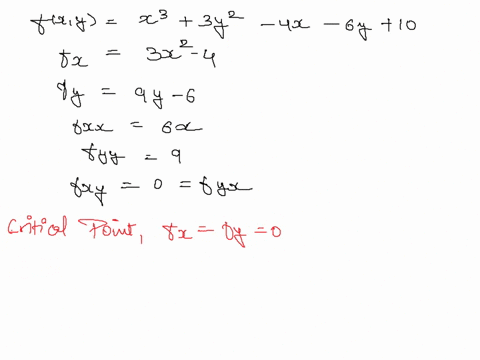 f(x,y) = x³ + 3y² - 4x - 6y + 10
fx = 3x² - 4
fy = 9y - 6
fxx = 6x
fyy = 9
fxy = 0 = fyx
Critical Point, fx = fy = 0